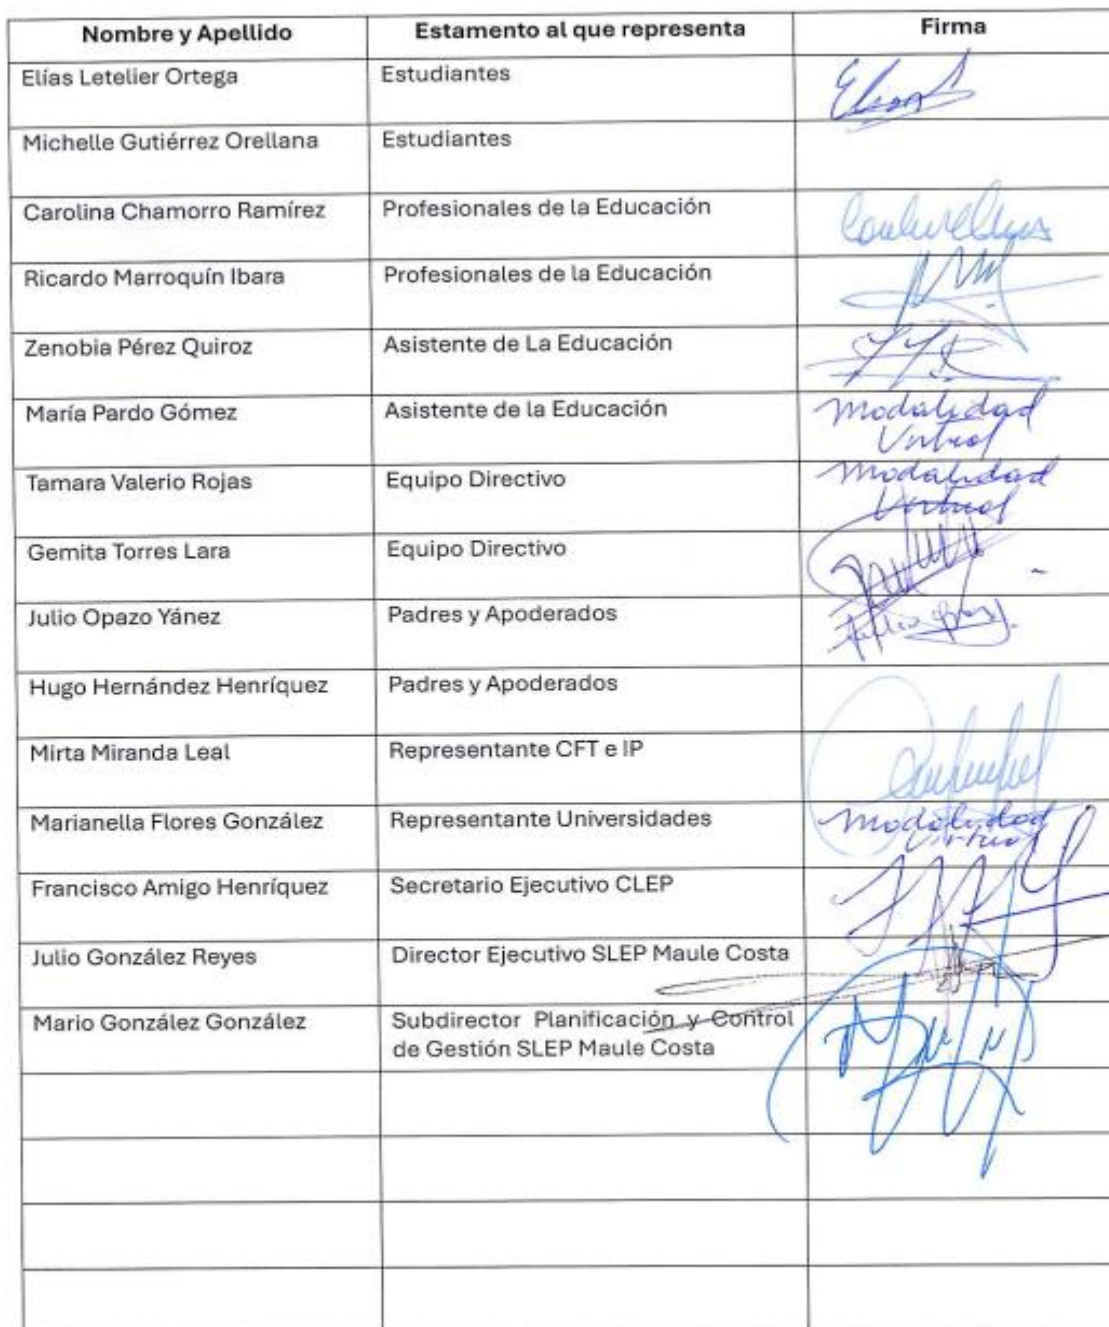 Nombre y Apellido Estamento al que representa Firma
Elías Letelier Ortega Estudiantes
Michelle Gutiérrez Orellana Estudiantes
Carolina Chamorro Ramírez Profesionales de la Educación
Ricardo Marroquín Ibara Profesionales de la Educación
Zenobia Pérez Quiroz Asistente de La Educación
María Pardo Gómez Asistente de la Educación Modalidad
Virtual
Tamara Valerio Rojas Equipo Directivo Modalidad
Virtual
Gemita Torres Lara Equipo Directivo
Julio Opazo Yánez Padres y Apoderados
Hugo Hernández Henríquez Padres y Apoderados
Mirta Miranda Leal Representante CFT e IP
Marianella Flores González Representante Universidades Modalidad
Virtual
Francisco Amigo Henríquez Secretario Ejecutivo CLEP
Julio González Reyes Director Ejecutivo SLEP Maule Costa
Mario González González Subdirector Planificación y Control
de Gestión SLEP Maule Costa